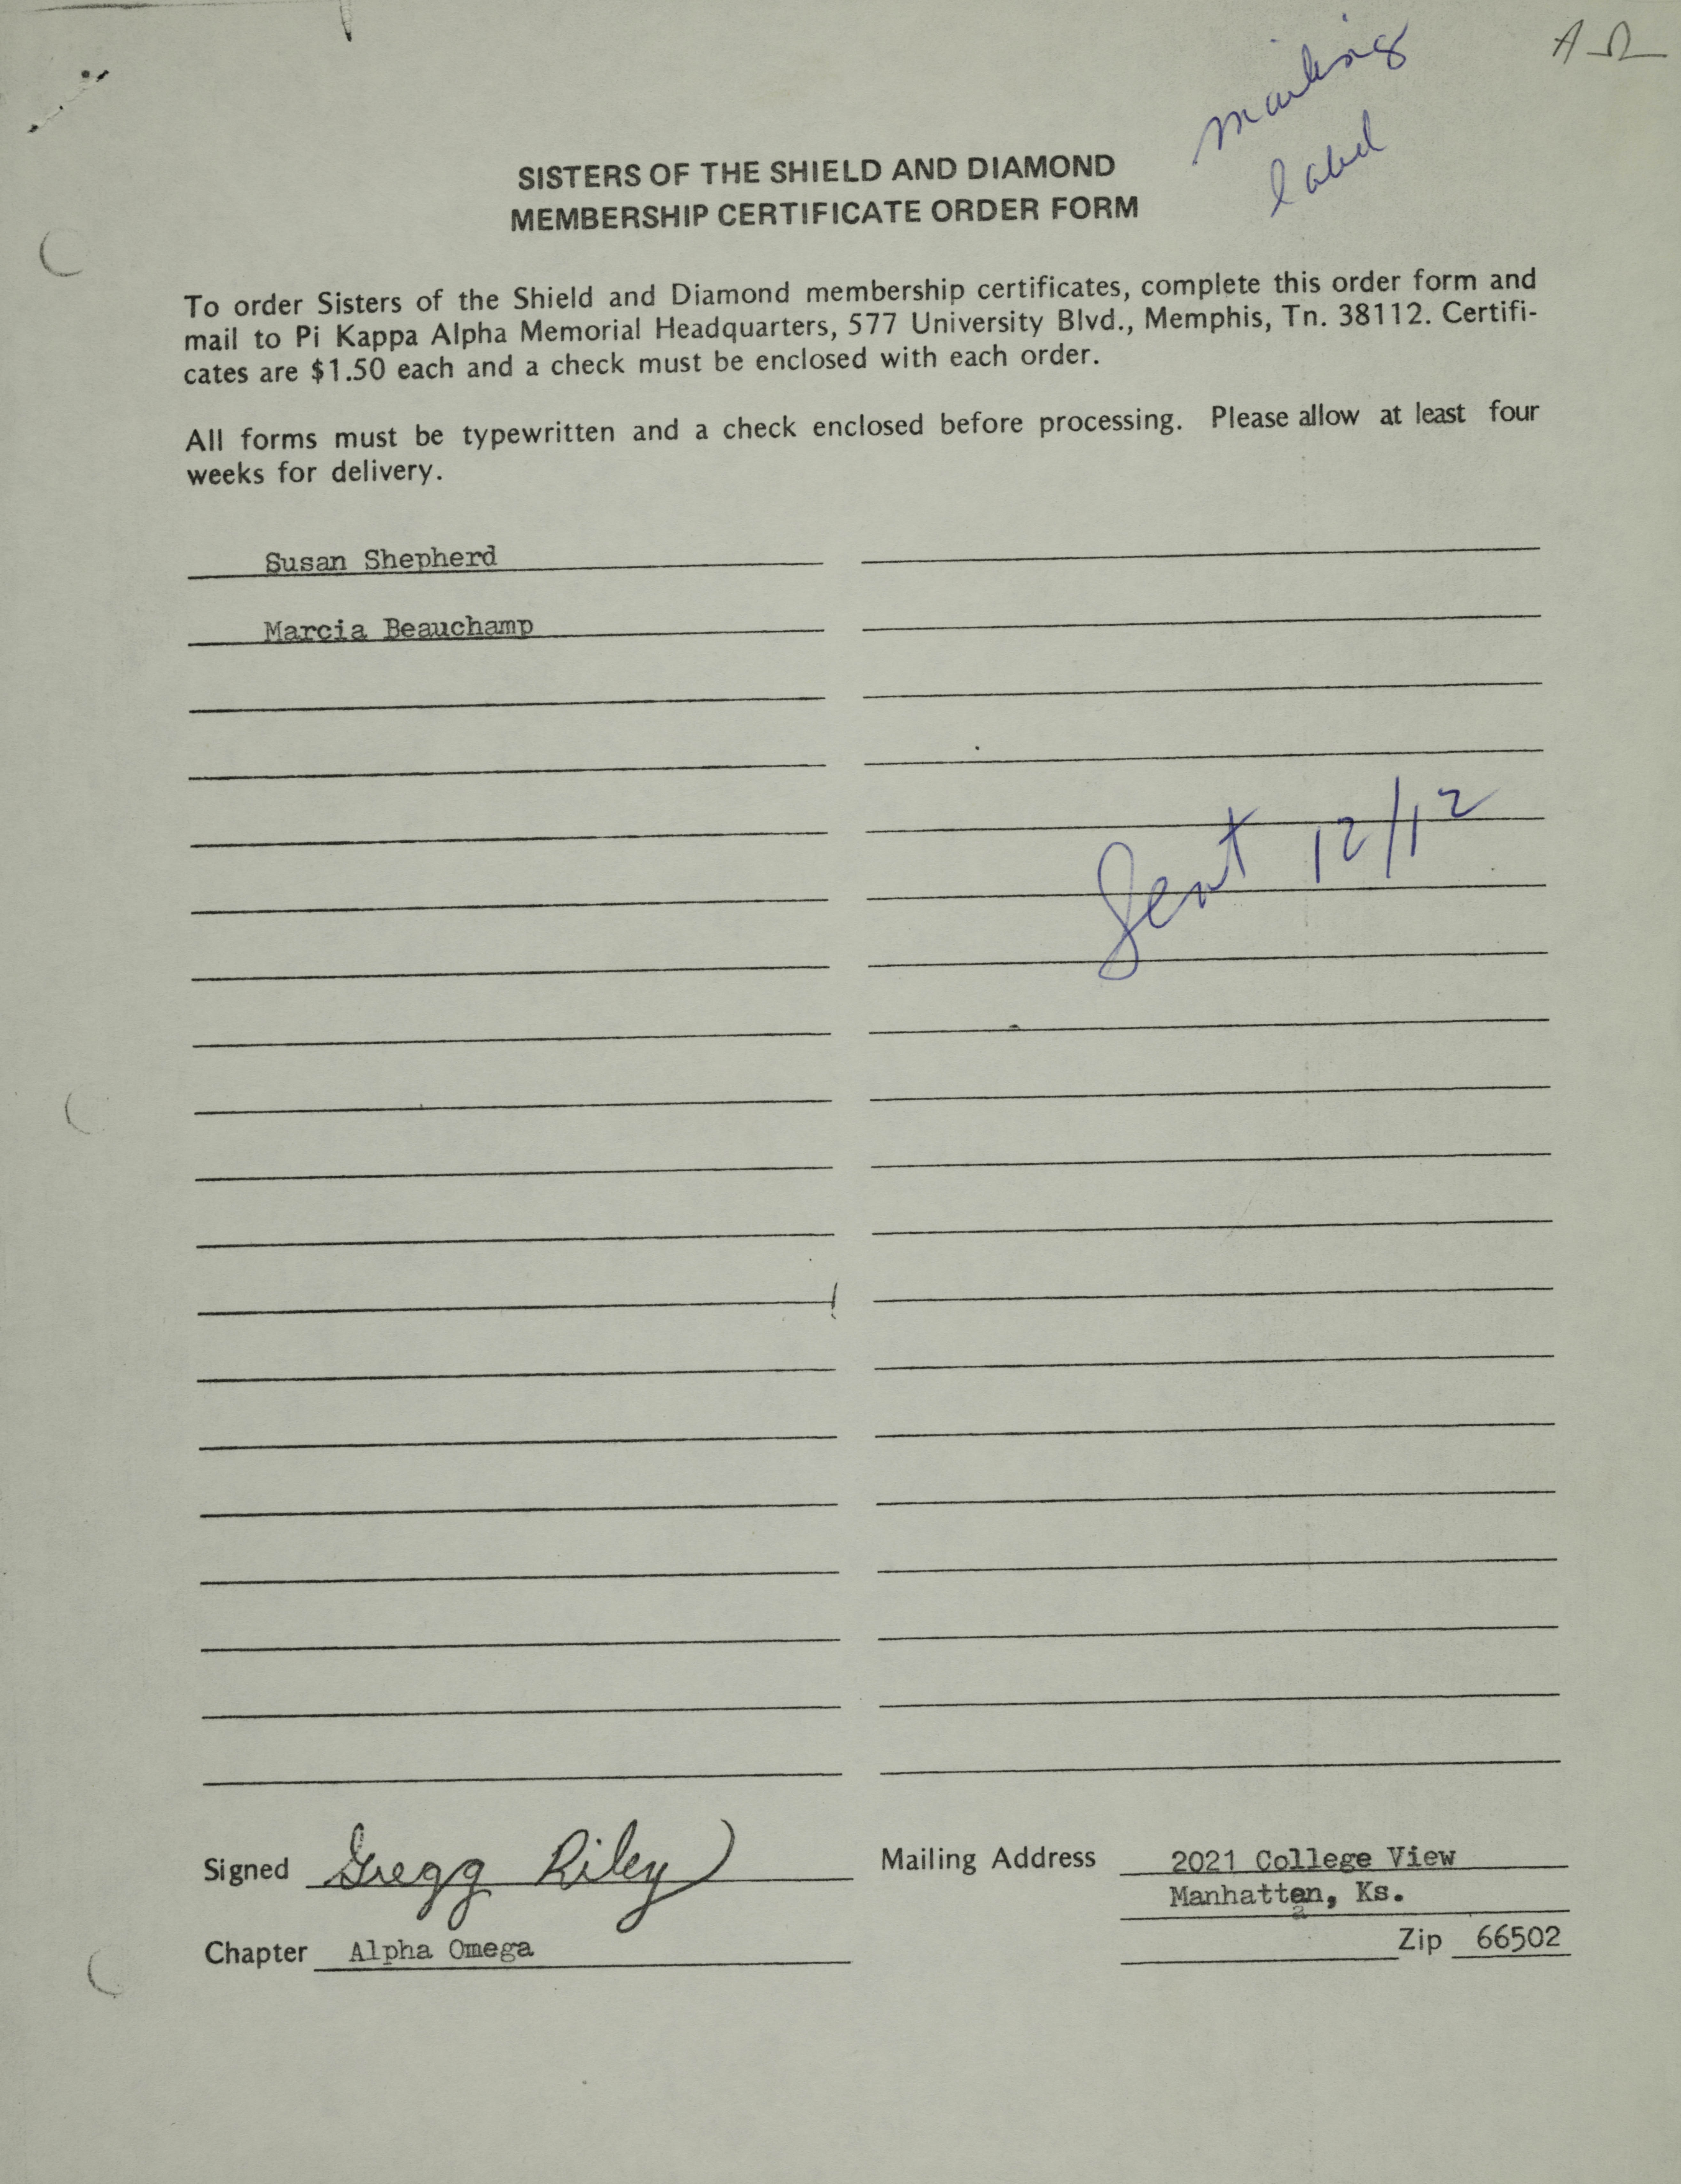 mailing
label
A Ω
SISTERS OF THE SHIELD AND DIAMOND
MEMBERSHIP CERTIFICATE ORDER FORM
To order Sisters of the Shield and Diamond membership certificates, complete this order form and
mail to Pi Kappa Alpha Memorial Headquarters, 577 University Blvd., Memphis, Tn. 38112. Certifi-
cates are $1.50 each and a check must be enclosed with each order.
All forms must be typewritten and a check enclosed before processing. Please allow at least four
weeks for delivery.
Susan Shepherd
Marcia Beauchamp
Sent 12/12
Signed Gregg Riley
Mailing Address 2021 College View
Manhatten, Ks.
a
Chapter Alpha Omega
Zip 66502